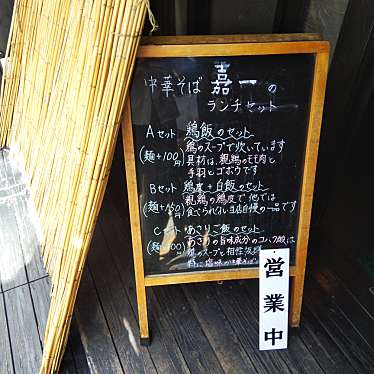 中華そば 嘉一の
ランチセット
Aセット 鶏飯のセット
(麺+100円)
鶏のスープで炊いています
具材は、親鶏のモモ肉と
手羽とゴボウです
Bセット 鶏皮+白飯のセット
(麺+150円)
親鶏の鶏皮で他では
食べられない当店自慢の一品です
Cセット あさりご飯のセット
あさりの旨味成分のコハク酸は
鶏のスープと相性
営業中